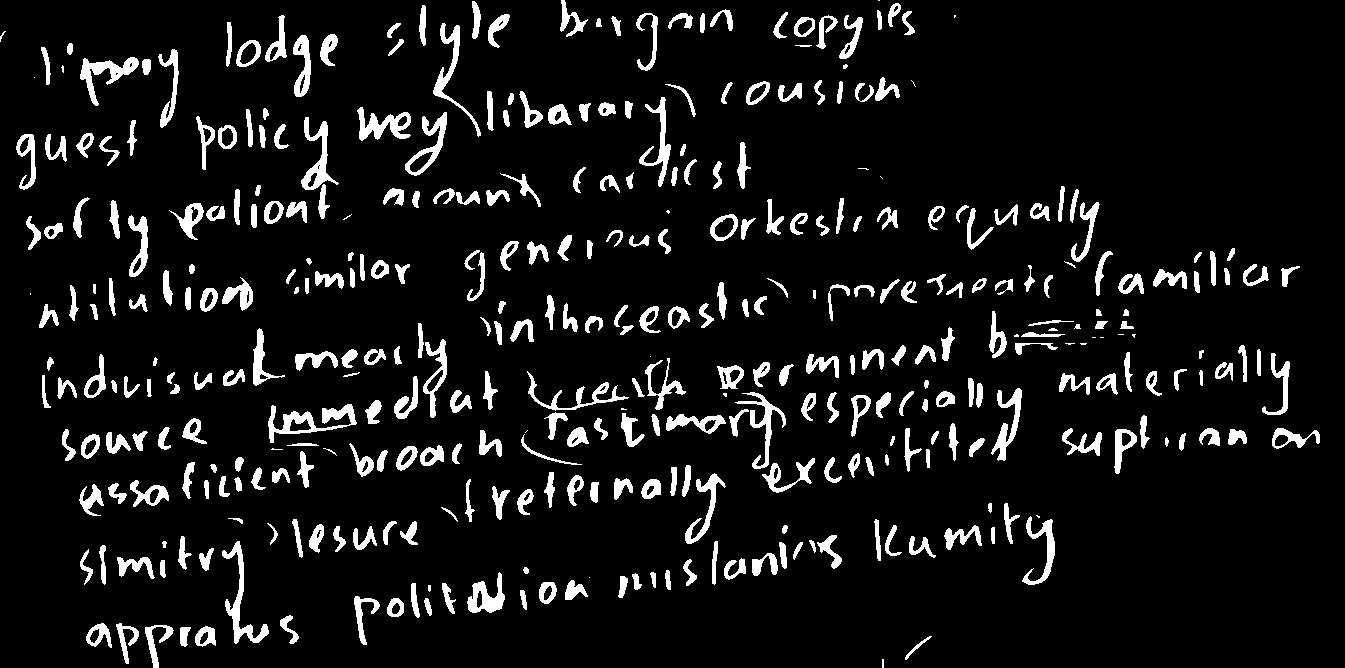 lodge style bargain copyies
guest policy wey libarary cousion
safty patiant around earliest
ntitution similar generous orkestra equally
indivisual mearly inthoseastic familiar
source immediat perminent
assaficient broach tastimary especially materially
simitry lesure freternally
appratus politation Kumity